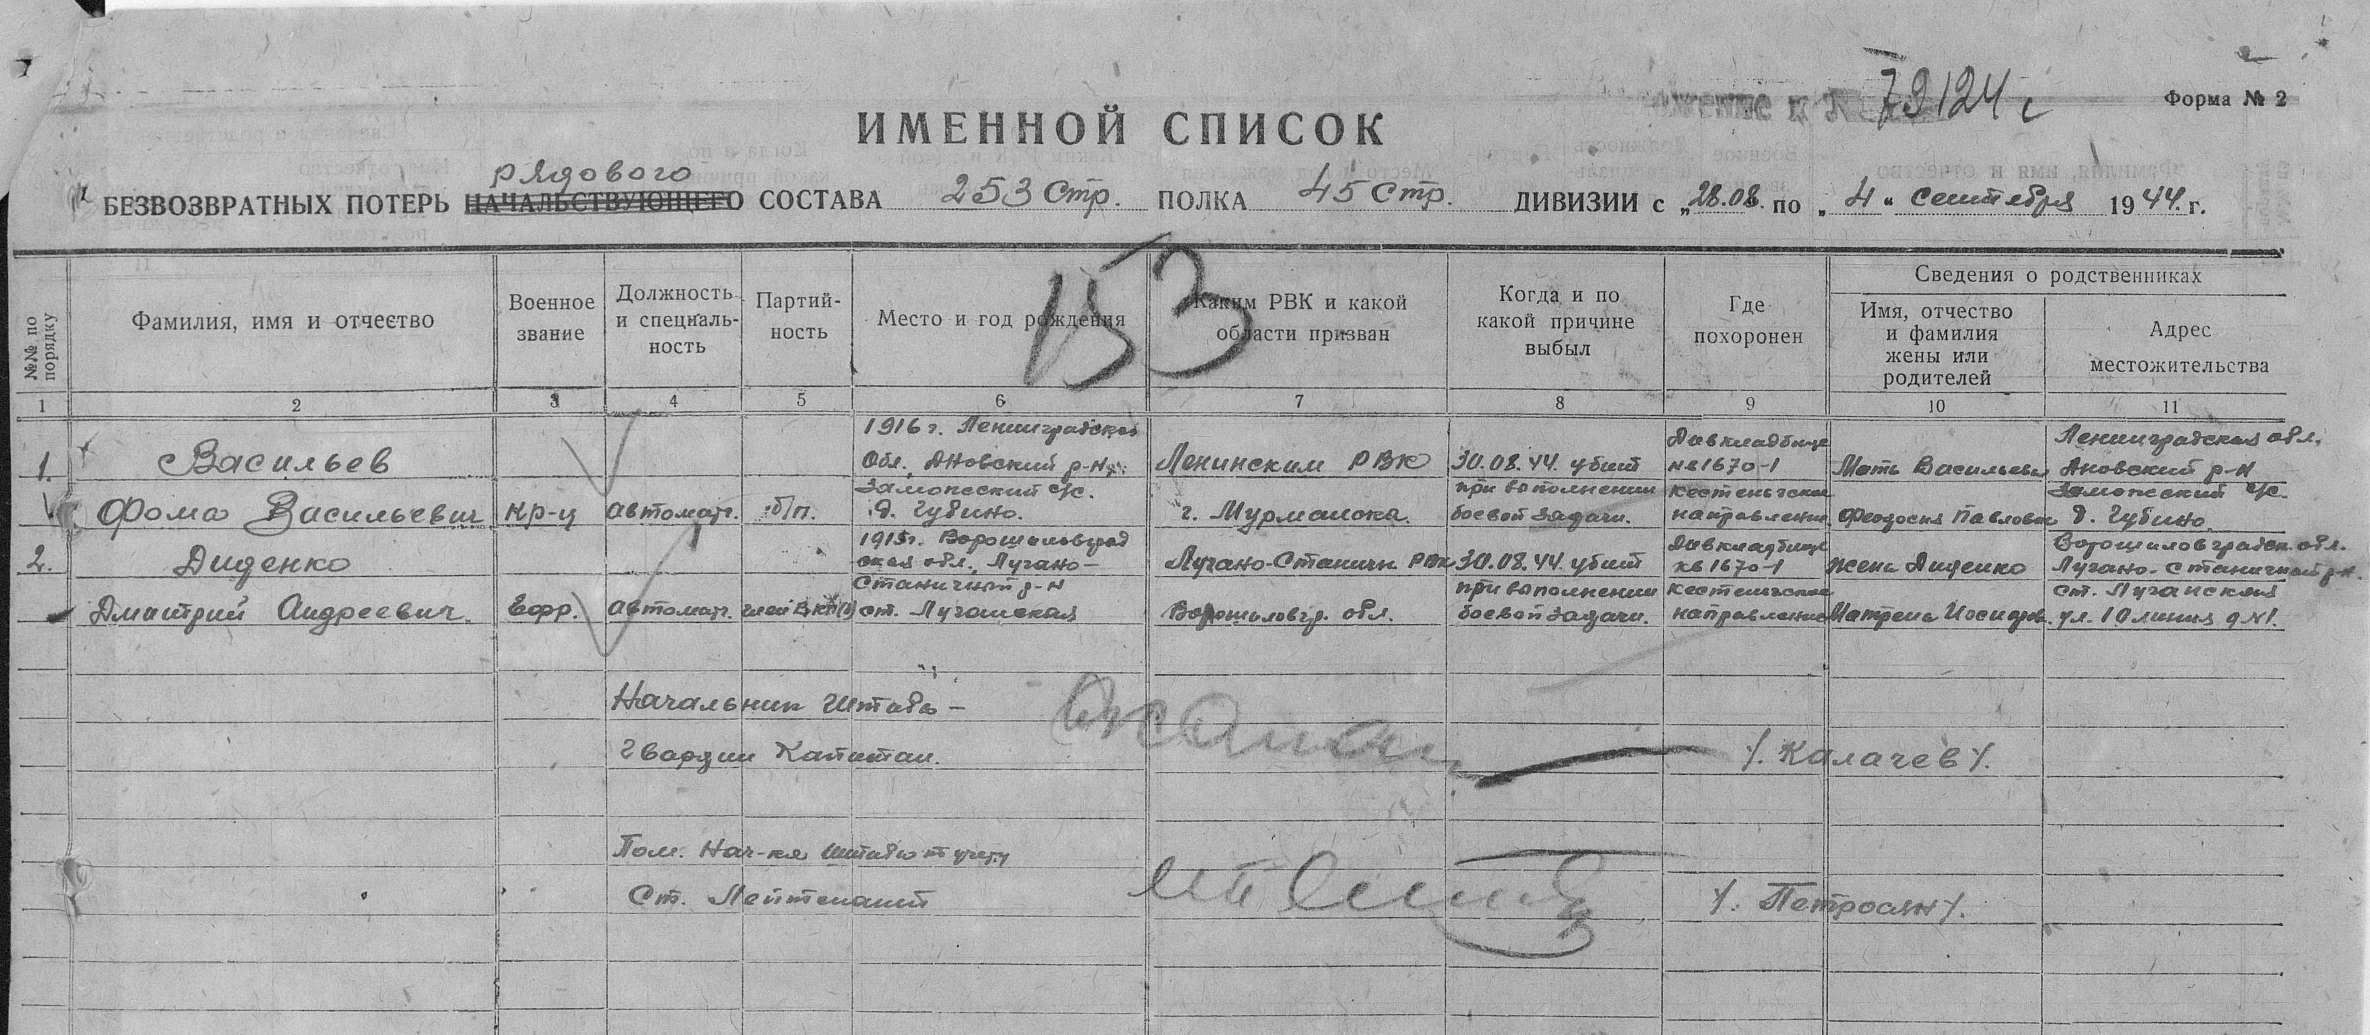 79124 с
Форма № 2
ИМЕННОЙ СПИСОК
рядового
БЕЗВОЗВРАТНЫХ ПОТЕРЬ НАЧАЛЬСТВУЮЩЕГО СОСТАВА 253 Стр. ПОЛКА 45 Стр. ДИВИЗИИ с „28.08. по „4" сентября 1944 г.
153
№№ по порядку
Фамилия, имя и отчество
Военное звание
Должность и специаль-ность
Партий-ность
Место и год рождения
Каким РВК и какой области призван
Когда и по какой причине выбыл
Где похоронен
Сведения о родственниках
Имя, отчество и фамилия жены или родителей
Адрес местожительства
1 2 3 4 5 6 7 8 9 10 11
1.
Васильев
Фома Васильевич
кр-ц
автоматч.
б/п.
1916 г. Ленинградская
обл. Ановский р-н
Замопеский с/с.
д. Губино.
Ленинским РВК
г. Мурманска.
30.08.44. убит
при выполнении
боевой задачи.
Див кладбище
кв 1670-1
Кестеньгское
направление.
Мать Васильева
Феодосия Павловна
Ленинградская обл.
Ановский р-н
Замопеский с/с.
д. Губино.
2.
Диденко
Дмитрий Андреевич.
Ефр.
автоматч.
член ВКП(б)
1915г. Ворошиловград
ская обл. Лугано-
Станичный р-н
ст. Луганская
Лугано-Станичн РВК
Ворошиловгр. обл.
30.08.44. убит
при выполнении
боевой задачи.
Див кладбище
кв 1670-1
Кестеньгское
направление
жена Диденко
Матрена Иосифов.
Ворошиловградск. обл.
Лугано-станичный р-н.
ст. Луганская
ул. 10 линия д №1.
Начальник Штаба –
Гвардии Капитан.
/. Калачев /.
Пом. Нач-ка Штаба по учету
Ст. Лейтенант
/. Петросян /.